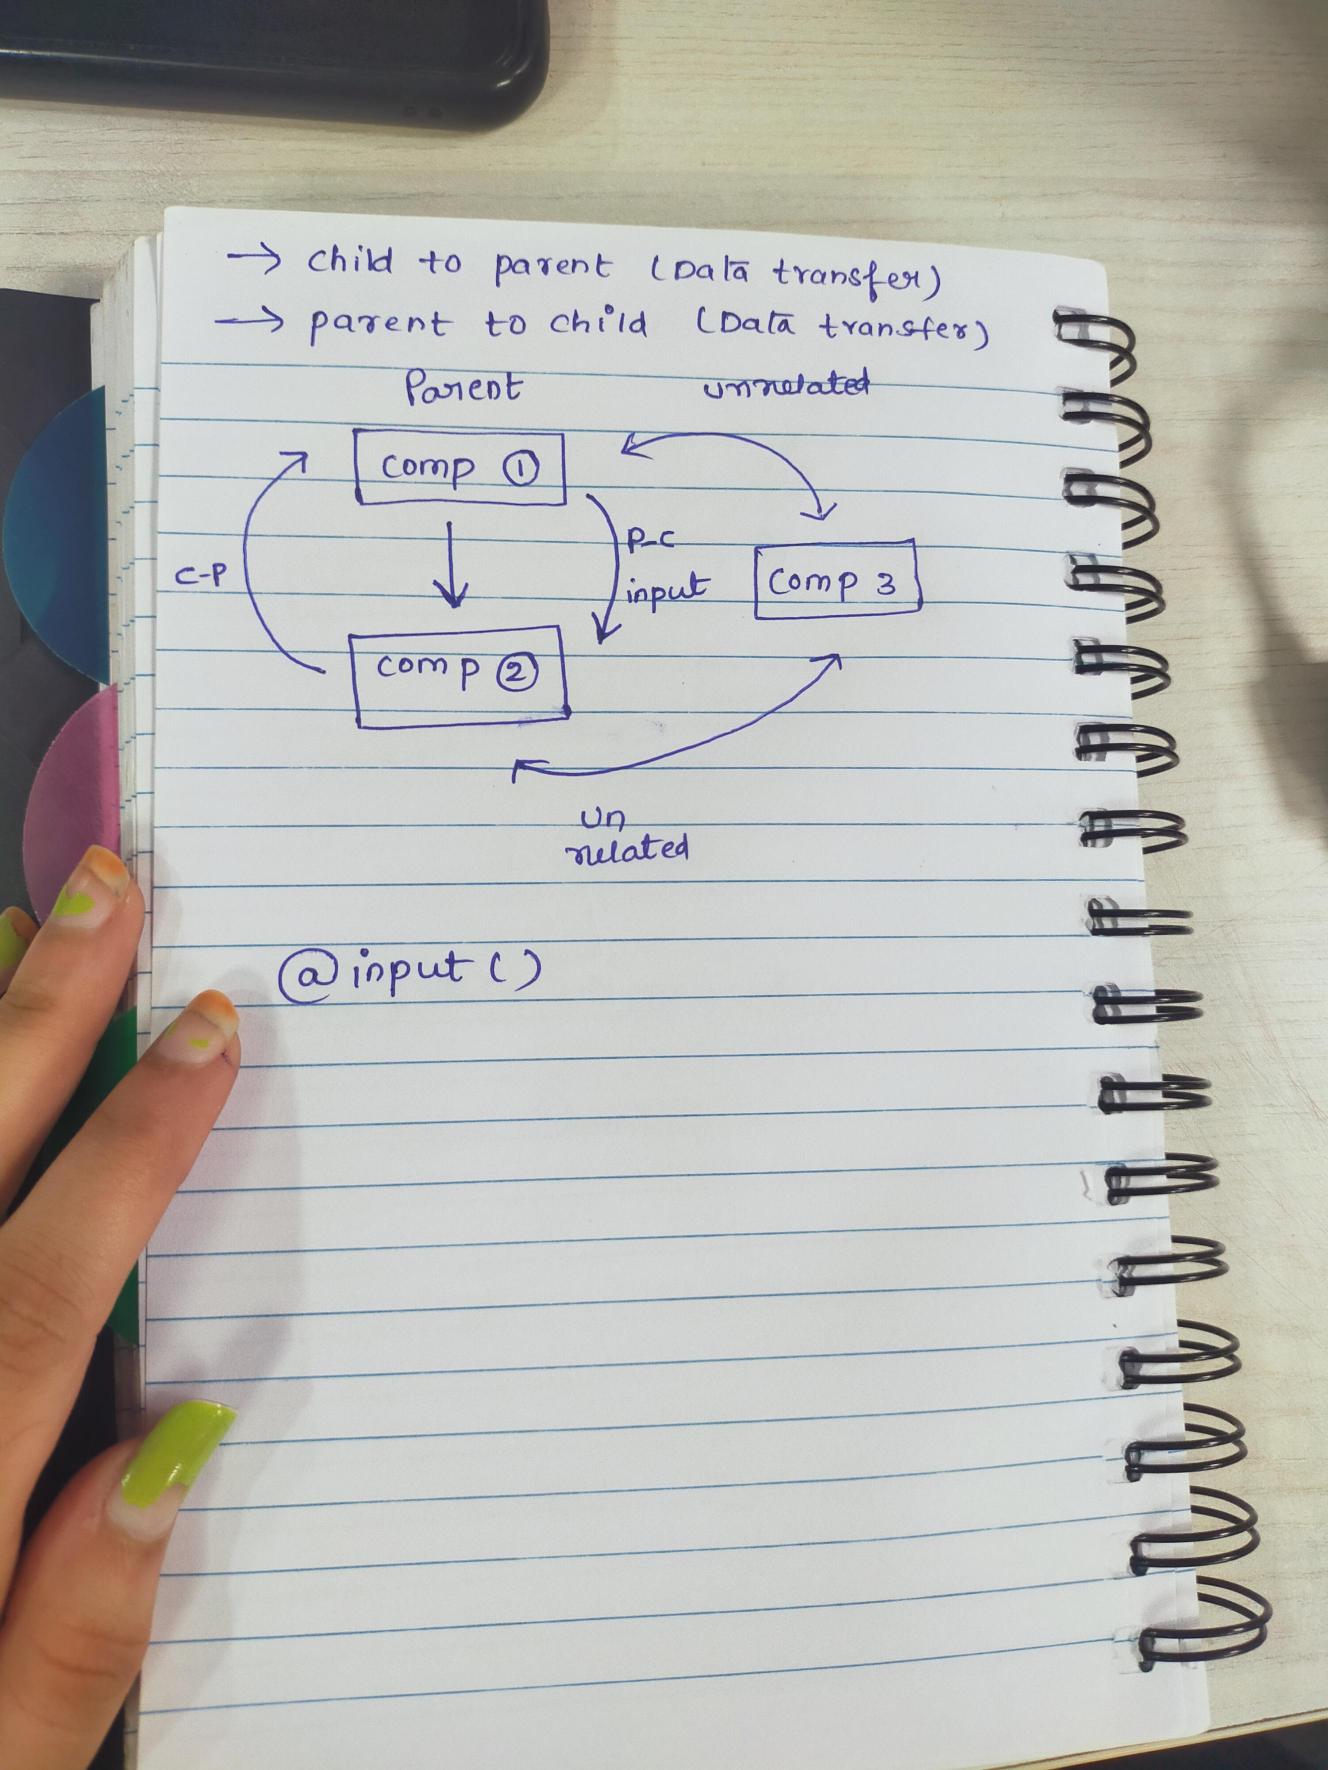 → child to parent (Data transfer)
→ parent to child (Data transfer)
Parent unrelated
comp ①
P-C
input
C-P
comp 3
comp ②
un
related
@input()